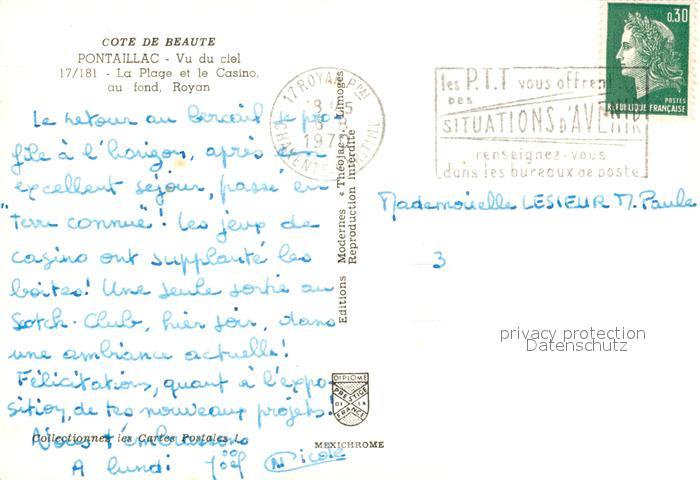 COTE DE BEAUTE
PONTAILLAC - Vu du ciel
17/181 - La Plage et le Casino,
au fond, Royan
Le retour au bercail se pro-
file à l'horizon, après un
excellent séjour, passé en
"terre connue"! Les jeux de
casino ont supplanté les
boîtes! Une seule sortie au
Scotch-Club, hier soir, dans
une ambiance actuelle!
Félicitations, quant à l'expo-
sition, de tes nouveaux projets!
Collectionnez les Cartes Postales !..
Nous t'embrassons
A lundi Joël Nicole
Editions Modernes « Théojac », Limoges
Reproduction Interdite
DIPLOME
PRESTIGE
DE LA
FRANCE
MEXICHROME
17 ROYAN Ppal
1970
CHARENTE-MARITIME
les P.T.T vous offrent
DES
SITUATIONS D'AVENIR
renseignez-vous
dans les bureaux de poste
0,30
POSTES
REPUBLIQUE FRANÇAISE
Mademoiselle LESIEUR M. Paule
3
privacy protection
Datenschutz